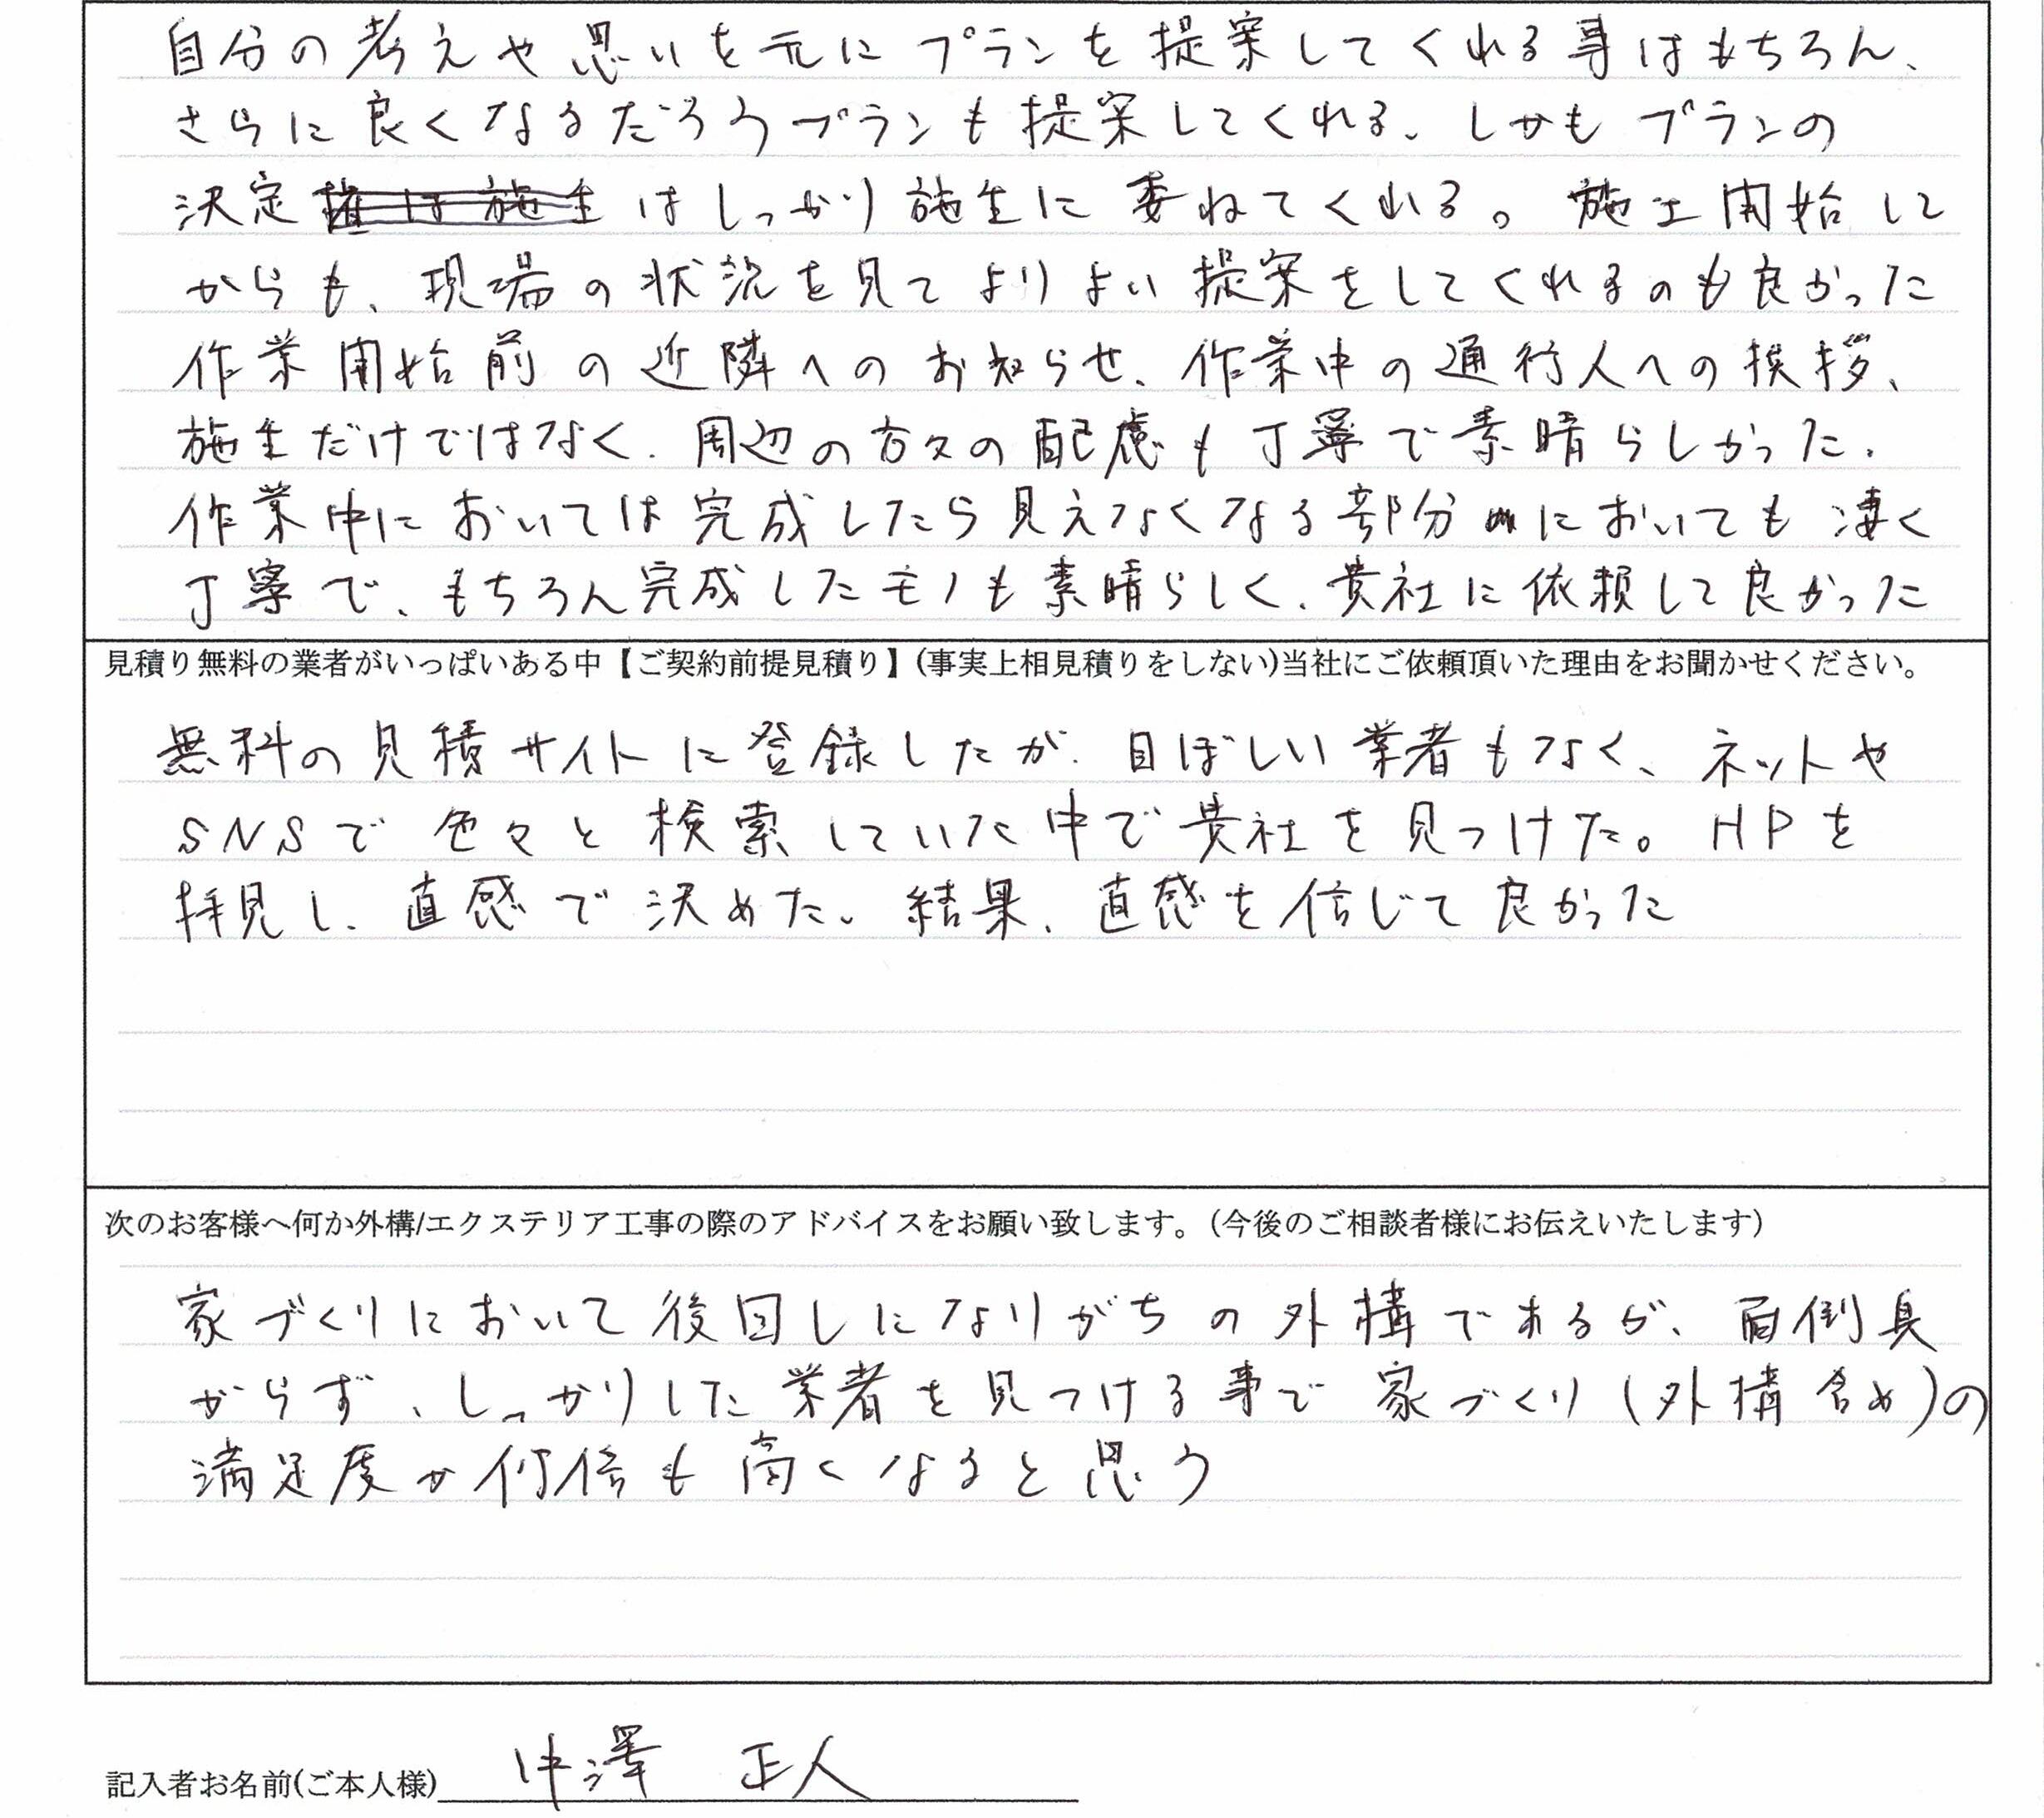 自分の考えや思いを元にプランを提案してくれる事はもちろん、
さらに良くなるだろうプランも提案してくれる、しかもプランの
決定権は施主はしっかり施主に委ねてくれる。施工開始して
からも、現場の状況を見てよりよい提案をしてくれるのも良かった
作業開始前の近隣へのお知らせ、作業中の通行人への挨拶、
施主だけではなく、周辺の方々の配慮も丁寧で素晴らしかった、
作業中においては完成したら見えなくなる部分においても凄く
丁寧で、もちろん完成したモノも素晴らしく、貴社に依頼して良かった
見積り無料の業者がいっぱいある中【ご契約前提見積り】(事実上相見積りをしない)当社にご依頼頂いた理由をお聞かせください。
無料の見積サイトに登録したが、目ぼしい業者もなく、ネットや
SNSで色々と検索していた中で貴社を見つけた。HPを
拝見し、直感で決めた。結果、直感を信じて良かった
次のお客様へ何か外構/エクステリア工事の際のアドバイスをお願い致します。(今後のご相談者様にお伝えいたします)
家づくりにおいて後回しになりがちの外構であるが、面倒臭
がらず、しっかりした業者を見つける事で家づくり(外構含め)の
満足度が何倍も高くなると思う
記入者お名前(ご本人様) 中澤 正人